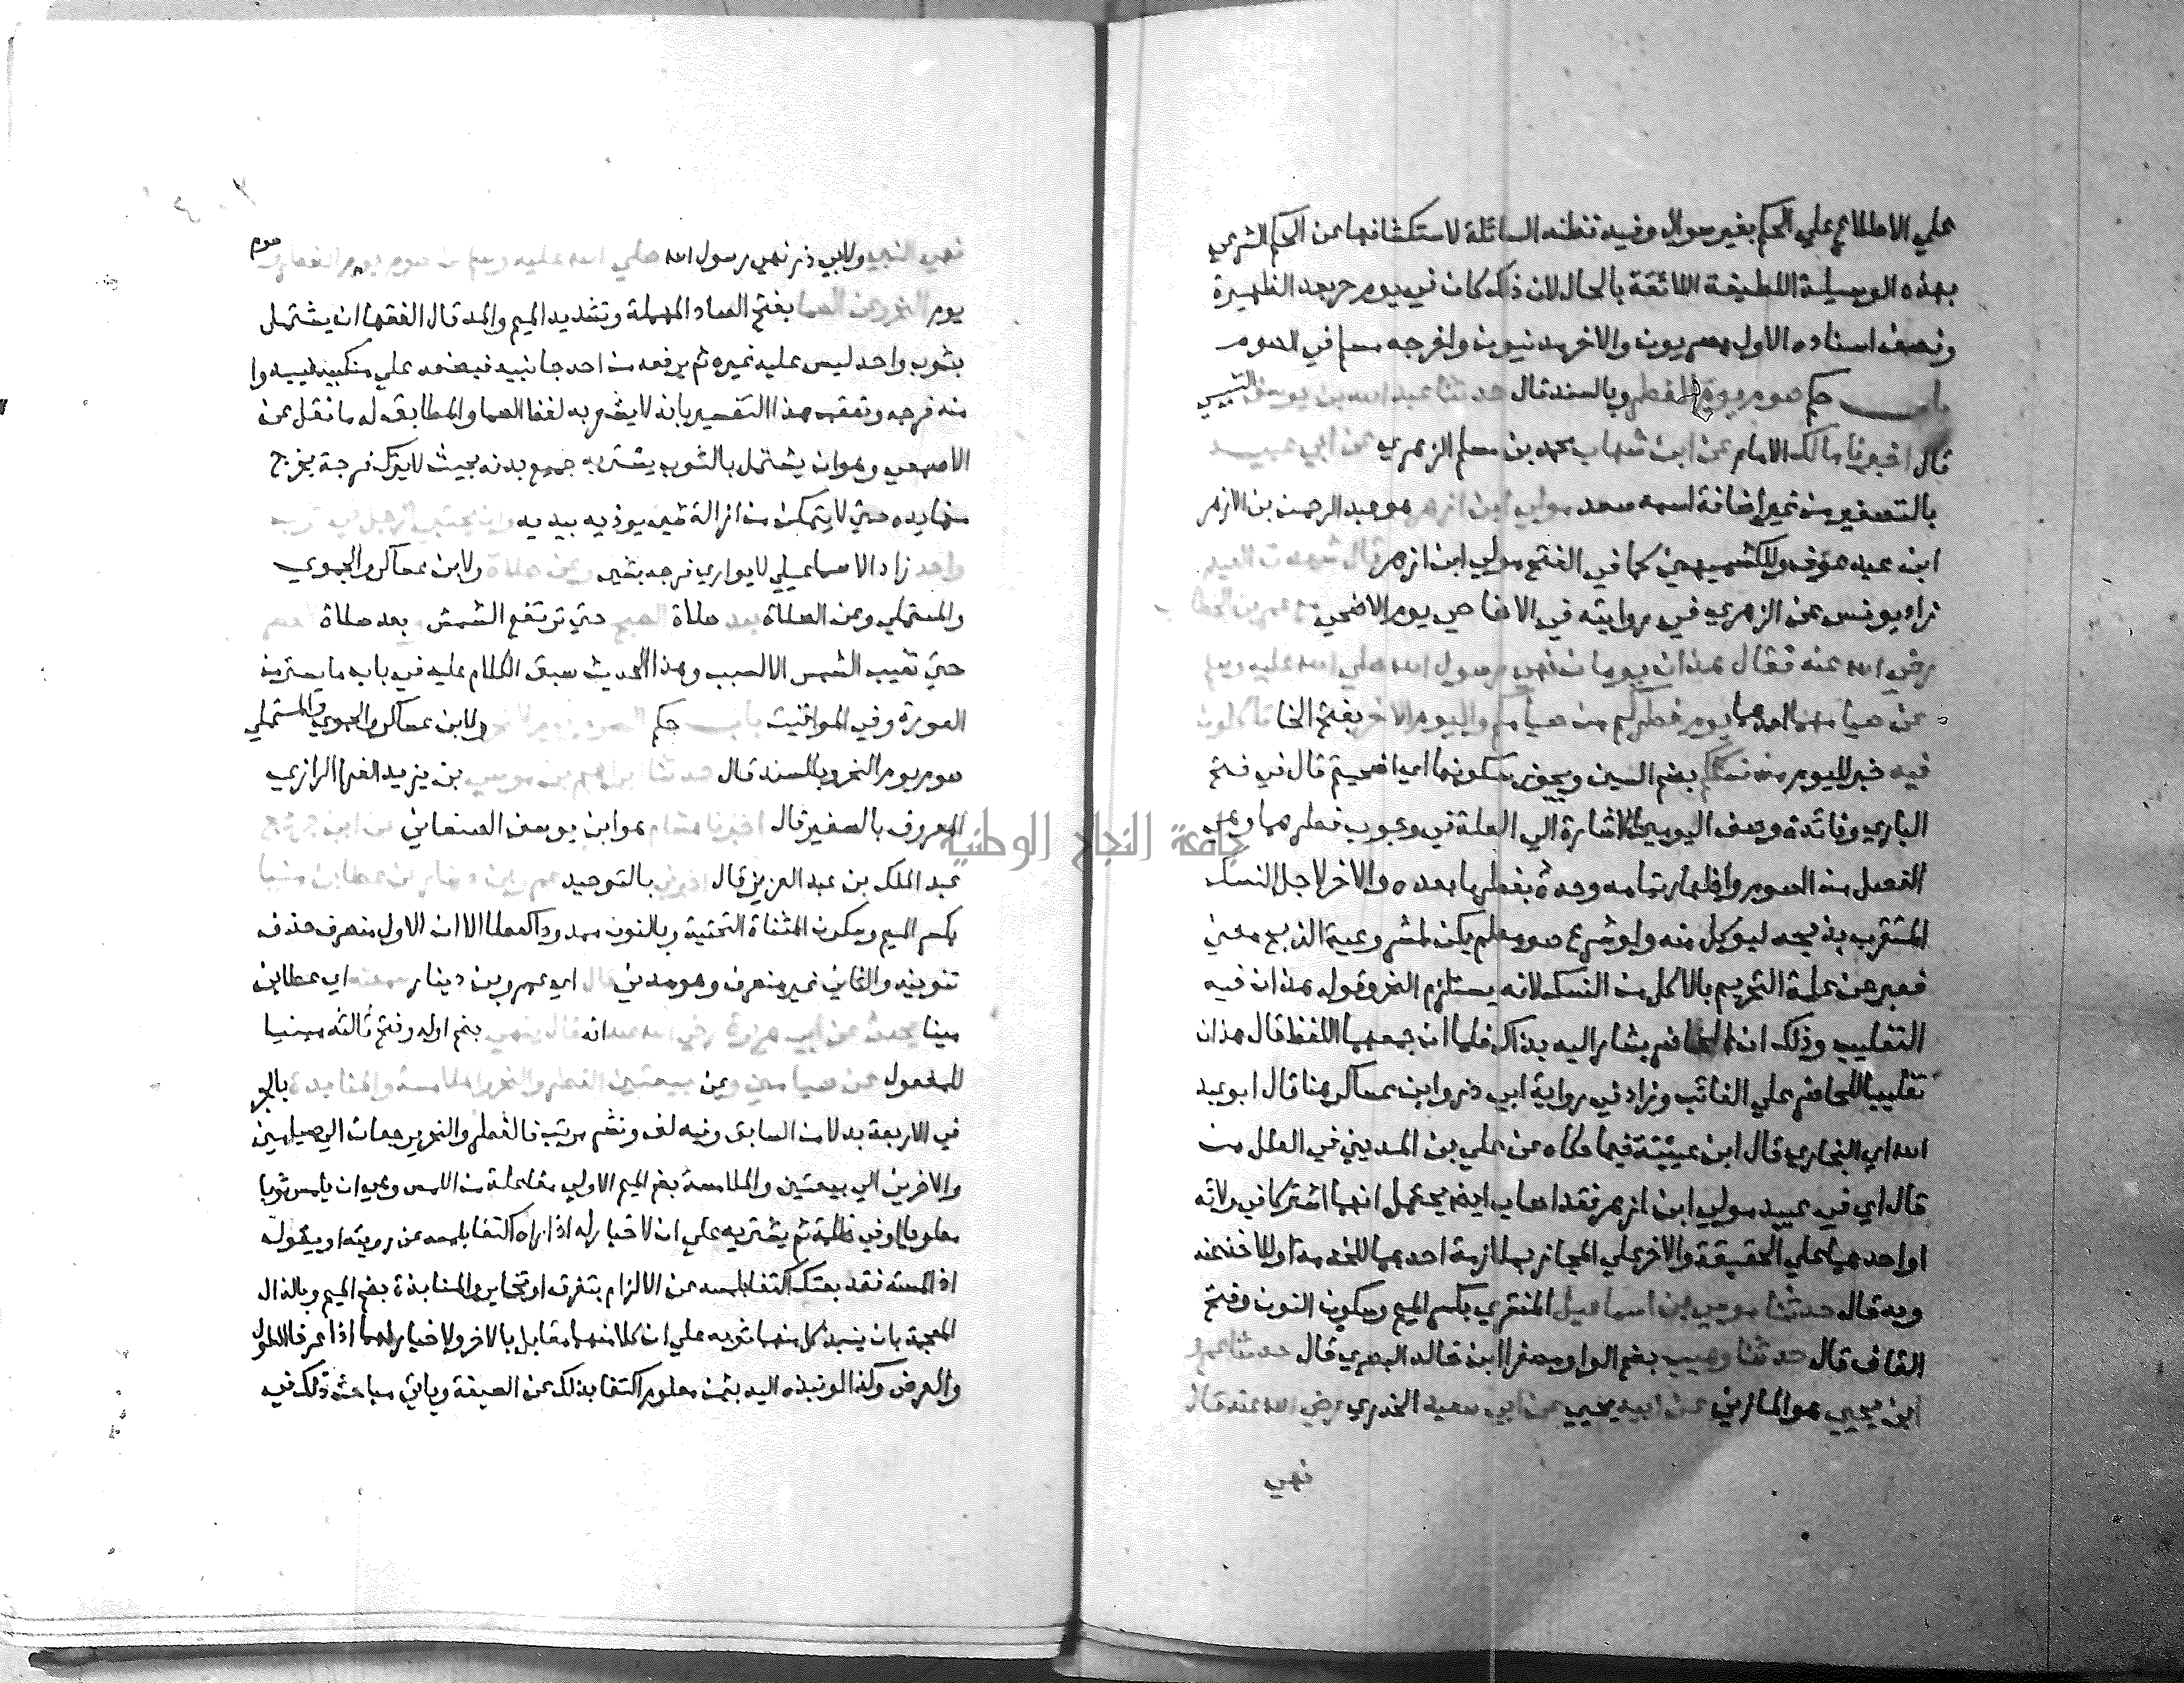 علي الاطلاع علي الحكم بغير سوال وفيه فطنة السائلة لاستكشافها عن الحكم الشرعي
بهذه الوسيلة اللطيفة اللائقة بالحال لان ذلك كان في يوم حر بعد الظهيرة
ونصف اسناده الاول بصريون والاخر مدنيون واخرجه مسلم في الصوم
باب حكم صوم يوم الفطر وبالسند قال حدثنا عبد الله بن يوسف التنيسي
قال اخبرنا مالك الامام عن ابن شهاب محمد بن مسلم الزهري عن ابي عبيد
بالتصغير من غير اضافة اسمه سعد مولي ابن ازهر هو عبد الرحمن بن الازهر
ابن عبد عوف وللكشميهني كما في الفتح مولي ابن ازهر قال شهدت العيد
زاد يونس عن الزهري في روايته في الاضاحي يوم الاضحي
رضي الله عنه فقال هذان يومان نهي رسول الله صلي الله عليه وسلم
عن صيامهما احدهما يوم فطركم من صيامكم واليوم الاخر بفتح الخا تاكلون
فيه خبر لليوم من نسككم بضم السين ويجوز سكونها اي اضحيتكم قال في فتح
الباري وفائدة وصف اليومين الاشارة الي العلة في وجوب فطرهما وهي
الفصل من الصوم واظهار تمامه وحده بفطر ما بعده والاخر لاجل النسك
المتقرب بذبحه ليوكل منه ولو شرع صومه لم يكن لمشروعية الذبح معني
فعبر عن علة التحريم بالاكل من النسك لانه يستلزم النحر وقوله هذان فيه
التغليب وذلك ان الحاضر يشار اليه بذاك فلما ان جمعهما اللفظ قال هذان
تغليبا للحاضر علي الغائب وزاد في رواية ابي ذر وابن عساكر هنا قال ابو عبد
الله اي البخاري قال ابن عيينة فيما حكاه عن علي بن المديني في العلل من
قال اي في عبيد مولي ابن ازهر فقد اصاب ايضا يحتمل انهما اشتركا في ولائه
او احدهما علي الحقيقة والاخر علي المجاز بملازمة احدهما للخدمة او للاخذ عنه
وبه قال حدثنا موسي بن اسماعيل المنقري بكسر الميم وسكون النون وفتح
القاف قال حدثنا وهيب بضم الواو مصغرا ابن خالد البصري قال حدثنا عمرو
ابن يحيي هو المازني عن ابيه يحيي عن ابي سعيد الخدري رضي الله عنه قال
نهي
نهي النبي ولابي ذر نهي رسول الله صلي الله عليه وسلم عن صوم يوم الفطر و
صوم
يوم النحر وعن الصما بفتح الصاد المهملة وتشديد الميم والمد قال الفقها ان يشتمل
بثوب واحد ليس عليه غيره ثم يرفعه من احد جانبيه فيضعه علي منكبيه فيبدوا
منه فرجه وتعقب هذا التفسير بانه لا يشعر به لفظ الصما والمطابق له ما نقل عن
الاصمعي وهو ان يشتمل بالثوب يستر به جميع بدنه بحيث لا يترك فرجة يخرج
منها يده حتي لا يتمكن من ازالة شي يوذيه بيديه وان يحتبي الرجل في ثوب
واحد زاد الاسماعيلي لا يواري فرجه بشي وعن صلاة ولابن عساكر والحموي
والمستملي وعن الصلاة بعد صلاة الصبح حتي ترتفع الشمس وبعد صلاة العصر
حتي تغيب الشمس الا لسبب وهذا الحديث سبق الكلام عليه في باب ما يستر من
العورة وفي المواقيت باب حكم ولابن عساكر والحموي والمستملي
صوم يوم النحر وبالسند قال حدثنا ابراهيم بن موسي بن يزيد الفرا الرازي
المعروف بالصغير قال اخبرنا هشام هو ابن يوسف الصنعاني عن ابن جريج
عبد الملك بن عبد العزيز قال اخبرني بالتوحيد
بكسر الميم وسكون المثناة التحتية وبالنون ممدودا كعطا الا ان الاول منصرف حذف
تنوينه والثاني غير منصرف وهو مدني قال اي عمرو بن دينار سمعته اي عطا بن
مينا يحدث عن ابي هريرة رضي الله عنه انه قال ينهي بضم اوله وفتح ثالثه مبنيا
للمفعول عن صيامين وعن بيعتين الفطر والنحر والملامسة والمنابذة بالجر
في الاربعة بدلا من السابق وفيه لف ونشر مرتب فالفطر والنحر يرجعان الي صيامين
والاخرين الي بيعتين والملامسة بضم الميم الاولي مفاعلة من اللمس وهي ان يلمس ثوبا
مطويا او في ظلمة ثم يشتريه علي ان لا خيار له اذا راه اكتفا بلمسه عن رويته او يقول
اذا لمسته فقد بعتك اكتفا بلمسه عن الالزام بتفرق او تخاير والمنابذة بضم الميم وبالذال
المعجمة بان ينبذ كل منهما ثوبه علي ان كلا منهما مقابل بالاخر ولا خيار لهما اذا عرفا الطول
والعرض وكذا لو نبذه اليه بثمن معلوم اكتفا بذلك عن الصيغة وياتي مباحث ذلك في
جامعة النجاح الوطنية